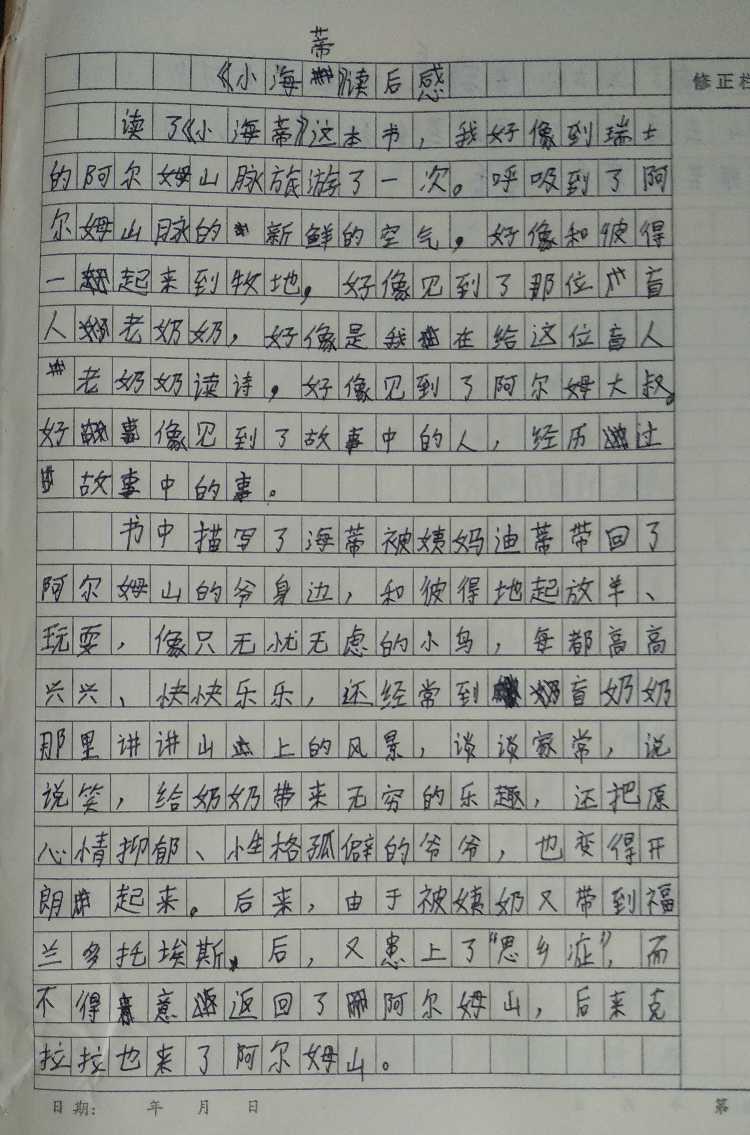 《小海蒂》读后感
修正栏
读了《小海蒂》这本书，我好像到瑞士
的阿尔姆山脉旅游了一次。呼吸到了阿
尔姆山脉的新鲜的空气，好像和彼得
一起来到牧地，好像见到了那位盲
人老奶奶，好像是我在给这位盲人
老奶奶读诗，好像见到了阿尔姆大叔。
好像见到了故事中的人，经历过
故事中的事。
书中描写了海蒂被姨妈迪蒂带回了
阿尔姆山的爷身边，和彼得地起放羊、
玩耍，像只无忧无虑的小鸟，每都高高
兴兴、快快乐乐，还经常到盲奶奶
那里讲讲山上的风景，谈谈家常，说
说笑，给奶奶带来无穷的乐趣，还把原
心情抑郁、性格孤僻的爷爷，也变得开
朗起来。后来，由于被姨奶又带到福
兰多托埃斯。后，又患上了“思乡症”，而
不得意返回了阿尔姆山，后来克
拉拉也来了阿尔姆山。
日期： 年 月 日 第